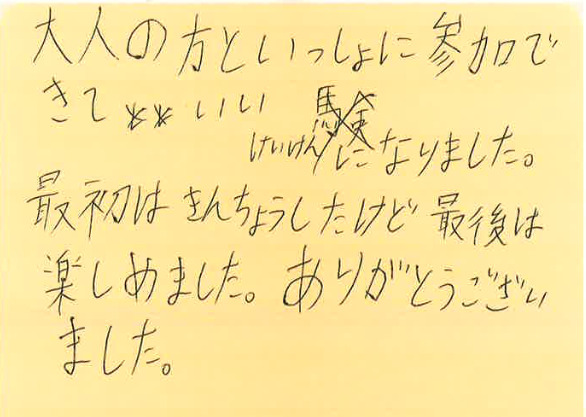 大人の方といっしょに参加で
きて いい
けいけんになりました。
最初はきんちょうしたけど最後は
楽しめました。ありがとうござい
ました。